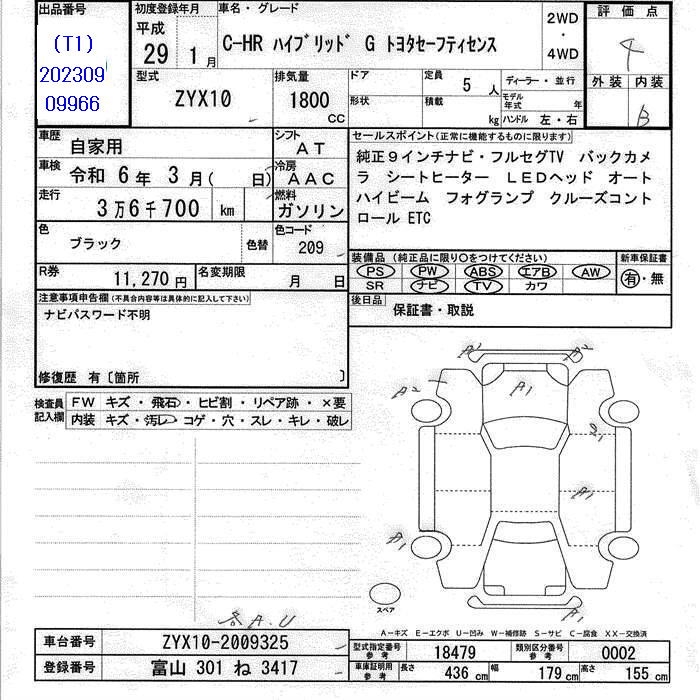 出品番号
(T1)
202309
09966
初度登録年月
平成
29 1 月
車名・グレード
C-HR ハイブリッド G トヨタセーフティセンス
2WD
・
4WD
評価点
4
外装 内装
B
型式
ZYX10
排気量
1800
CC
ドア
定員
5 人
ディーラー・並行
形状
積載
kg
モデル年式 年
ハンドル 左・右
車歴
自家用
シフト
AT
車検
令和 6 年 3 月( 日)
冷房
AAC
走行
3万6千700 km
燃料
ガソリン
色
ブラック
色替
色コード
209
R券
11,270 円
名変期限
月 日
セールスポイント(正常に機能するものに限ります)
純正9インチナビ・フルセグTV バックカメ
ラ シートヒーター LEDヘッド オート
ハイビーム フォグランプ クルーズコント
ロール ETC
装備品 (純正品に限り○をつけてください)
PS PW ABS エアB AW
SR ナビ TV カワ
新車保証書
有・無
後日品
保証書・取説
注意事項申告欄(不具合内容等は具体的に記入して下さい)
ナビパスワード不明
修復歴 有〔箇所 〕
検査員
記入欄
FW キズ・飛石・ヒビ割・リペア跡・×要
内装 キズ・汚レ・コゲ・穴・スレ・キレ・破レ
A2
A1
A1
A1
A1
スペア
各A.U
A-キズ E-エクボ U-凹み W-補修跡 S-サビ C-腐食 XX-交換済
車台番号
ZYX10-2009325
登録番号
富山 301 ね 3417
型式指定番号
参考
18479
類別区分番号
参考
0002
車庫証明用
参考
長さ 436 cm 幅 179 cm 高さ 155 cm